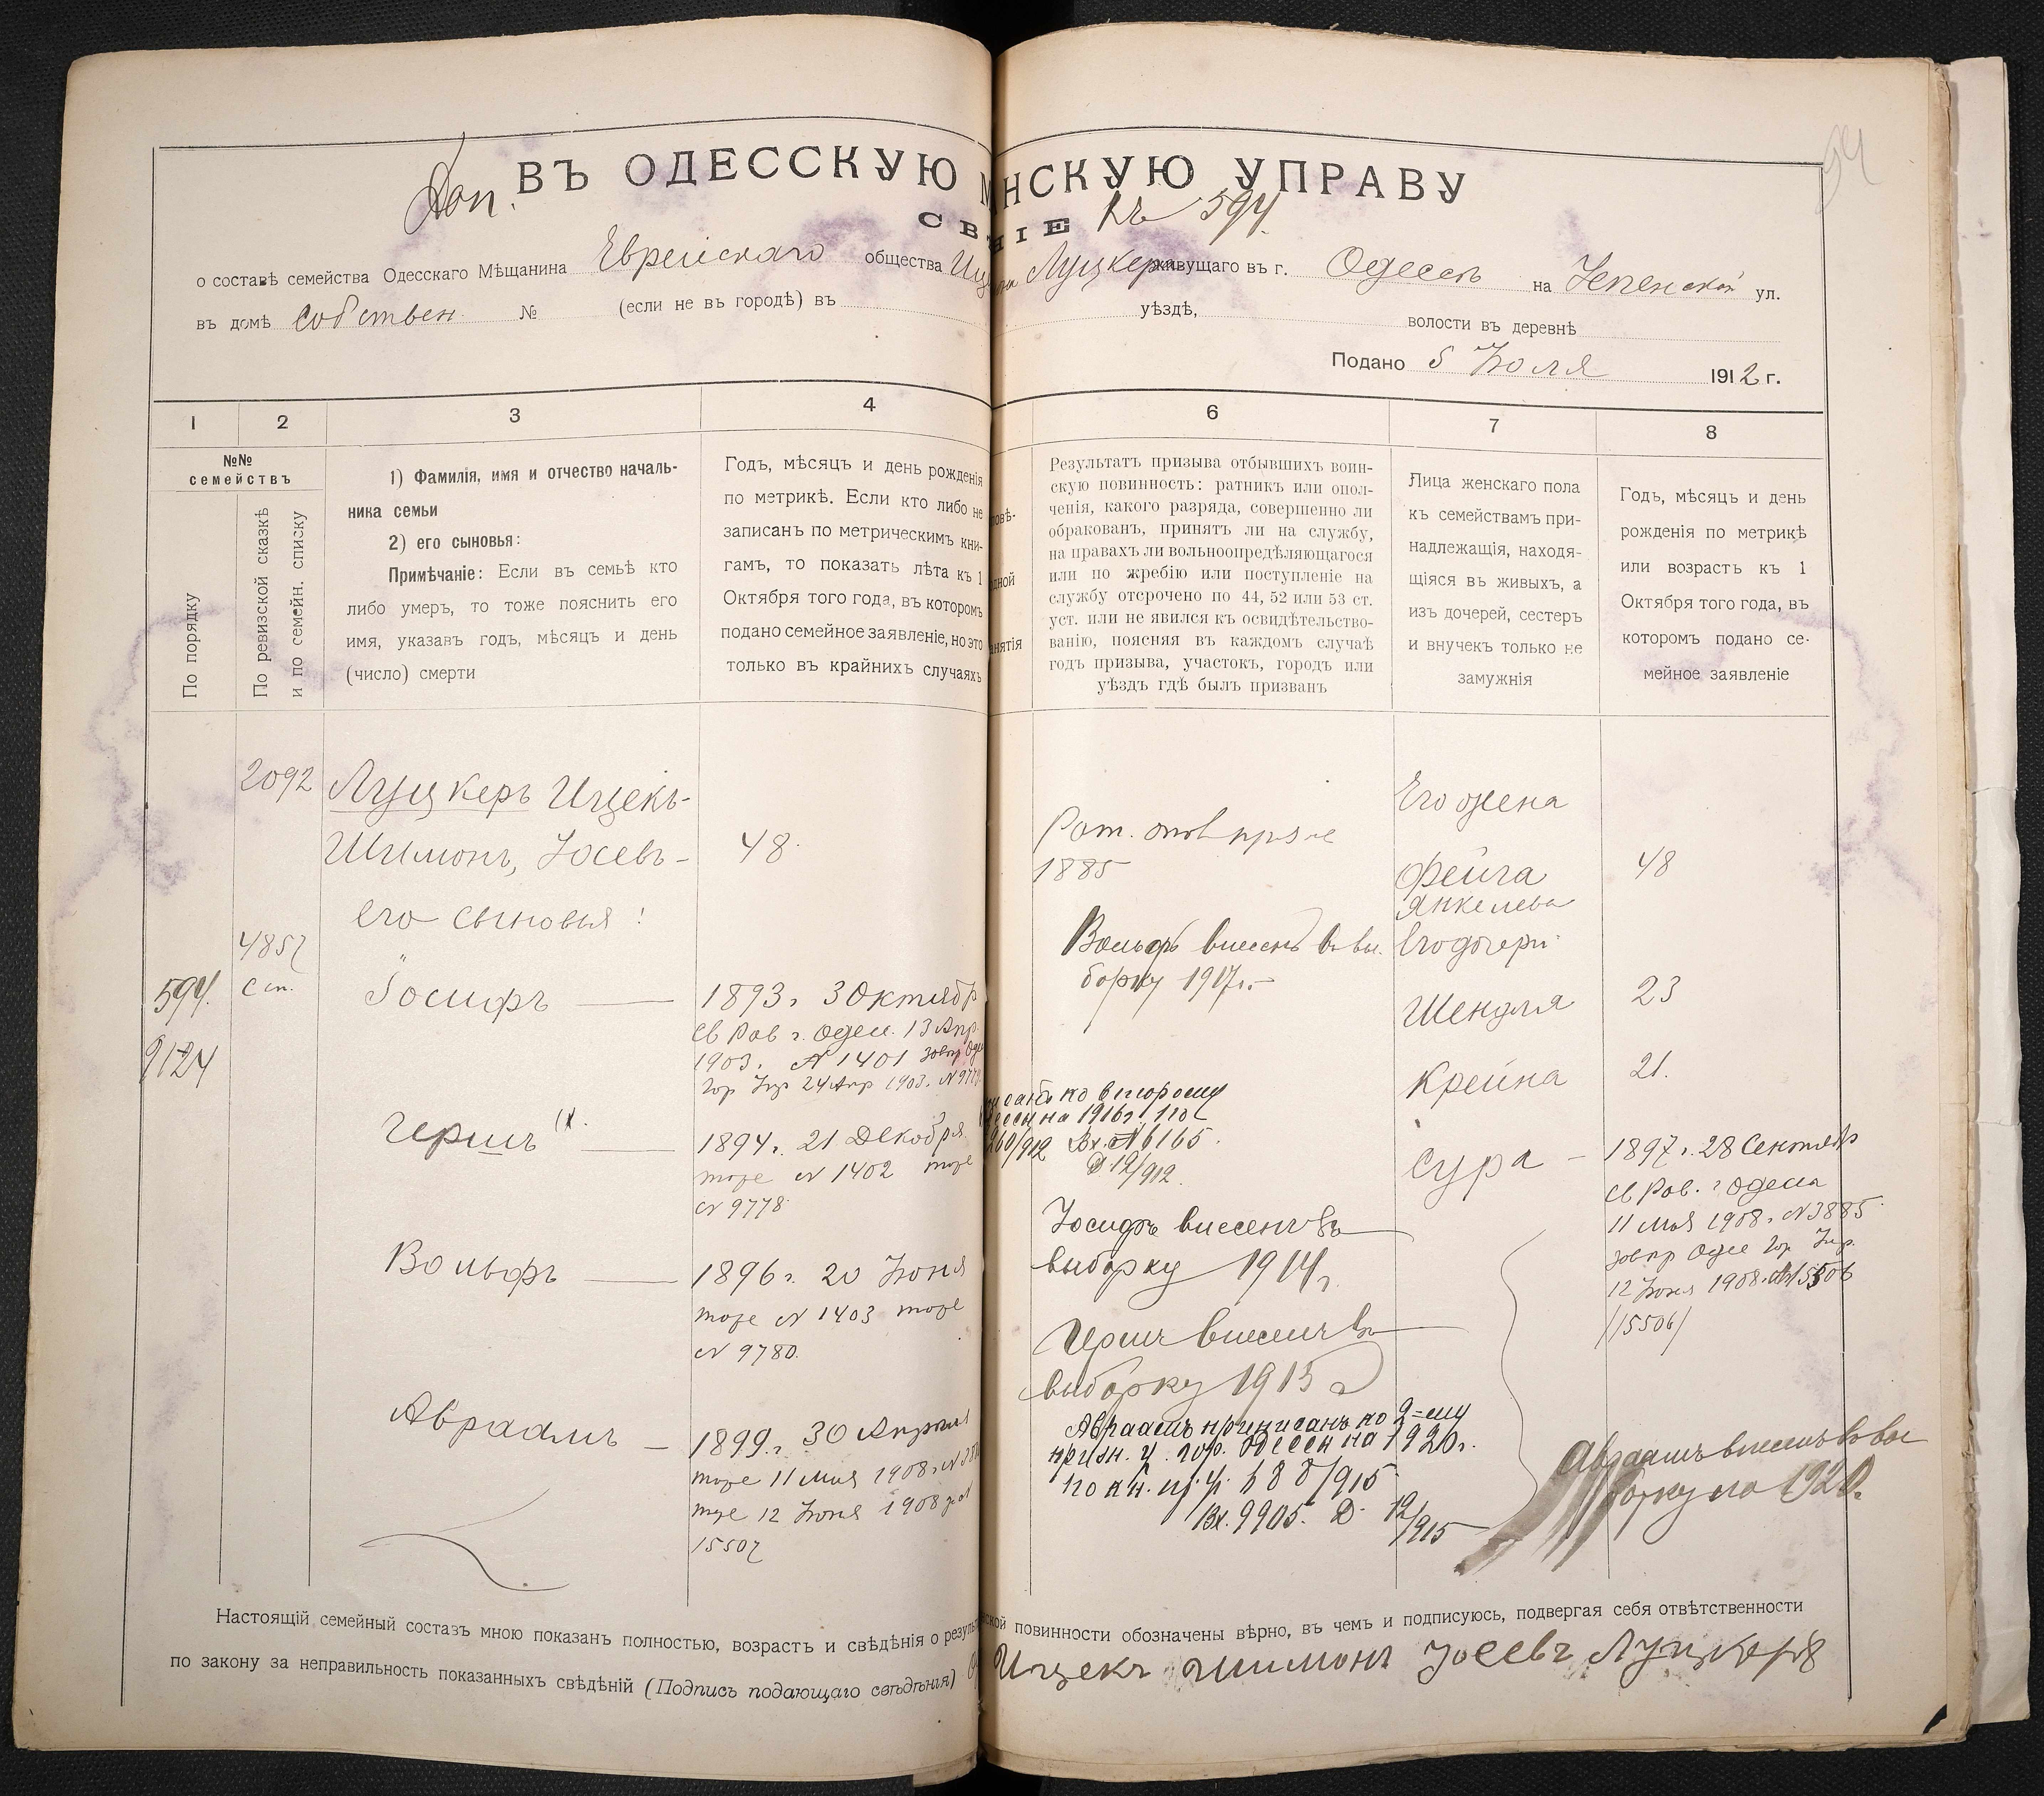 94
Доп. ВЪ ОДЕССКУЮ МНСКУЮ УПРАВУ
СВНІЕ Къ 594.
о составѣ семейства Одесскаго Мѣщанина Еврейскаго общества Луцкера живущаго въ г. Одессѣ на Успенской ул.
въ домѣ собствен № (если не въ городѣ) въ уѣздѣ, волости въ деревнѣ
Подано 5 Іюля 1912 г.
1 2 3 4 6 7 8
№№
семействъ
По порядку
По ревизской сказкѣ
и по семейн. списку
1) Фамилія, имя и отчество началь-
ника семьи
2) его сыновья:
Примѣчаніе: Если въ семьѣ кто
либо умеръ, то тоже пояснить его
имя, указавъ годъ, мѣсяцъ и день
(число) смерти
Годъ, мѣсяцъ и день рожденія
по метрикѣ. Если кто либо не
записанъ по метрическимъ кни-
гамъ, то показать лѣта къ 1
Октября того года, въ которомъ
подано семейное заявленіе, но это
только въ крайнихъ случаяхъ
Результатъ призыва отбывшихъ воин-
скую повинность: ратникъ или опол-
ченія, какого разряда, совершенно ли
обракованъ, принятъ ли на службу,
на правахъ ли вольноопредѣляющагося
или по жребію или поступленіе на
службу отсрочено по 44, 52 или 53 ст.
уст. или не явился къ освидѣтельство-
ванію, поясняя въ каждомъ случаѣ
годъ призыва, участокъ, городъ или
уѣздъ гдѣ былъ призванъ
Лица женскаго пола
къ семействамъ при-
надлежащія, находя-
щіяся въ живыхъ, а
изъ дочерей, сестеръ
и внучекъ только не
замужнія
Годъ, мѣсяцъ и день
рожденія по метрикѣ
или возрастъ къ 1
Октября того года, въ
которомъ подано се-
мейное заявленіе
2092
4857
Сп.
594.
9124
Луцкеръ Ицекъ-
Шимонъ, Іосевъ-
его сыновья:
Іосифъ
Гершъ
Вольфъ
Авраамъ
48
1893 г. 3 Октябр
св Рав г. Одес. 13 Апр.
1903 г. № 1401
Гор 24 Апр 1903 г.
1894 г. 21 Декабря
тоже № 1402 тоже
№ 9778
1896 г. 20 Іюня
тоже № 1403 тоже
№ 9780.
1899 г. 30 Апрѣля
тоже 11 Мая 1908 г.
тоже 12 Іюня 1908
15507
Рат.
1885
Вольфъ внесенъ въ вы-
борку 1917 г.
ко второму
на 1916 г. по
260/912 Вх. № 6165.
Д 12/912.
Іосифъ внесенъ въ
выборку 1914 г.
Гершъ внесенъ въ
выборку 1915 г
Авраамъ приписанъ ко 2=му
приз. у. гор. Одессы на 1920 г.
Вх. 9905. Д. 12/915
Его жена
Фейга
Янкелева
Его дочери
Шендля
Крейна
Сура
48
23
21.
1897 г. 28 Сентябр
св Рав. г Одесса
11 Мая 1908 г. № 3885
12 Іюня 1908 г.
/15506/
Авраамъ внесенъ въ вы
борку на 1920.
Настоящій семейный составъ мною показанъ полностью, возрастъ и свѣдѣнія о резуль ской повинности обозначены вѣрно, въ чемъ и подписуюсь, подвергая себя отвѣтственности
по закону за неправильность показанныхъ свѣдѣній (Подпись подающаго свѣдѣнія) Ицекъ Шимонъ Іосевъ Луцкеръ